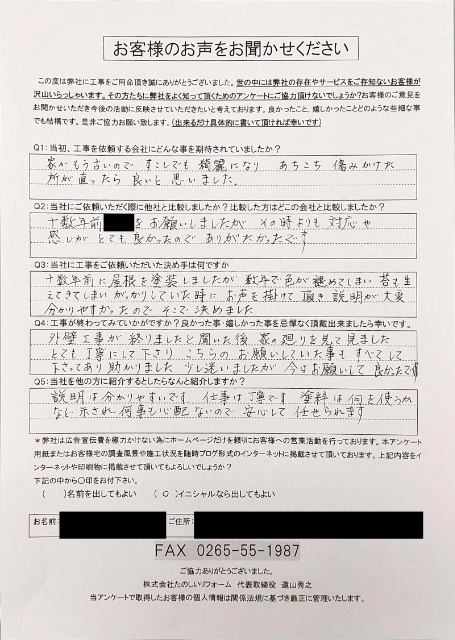 お客様のお声をお聞かせください
この度は弊社に工事をご用命頂き誠にありがとうございました。世の中には弊社の存在やサービスをご存知ないお客様が
沢山いらっしゃいます。その方たちに弊社をよく知って頂くためのアンケートにご協力頂けないでしょうか?お客様のご意見を
お聞かせいただき今後の活動に反映させていただきたいと考えております。良かったこと、嬉しかったことどのような些細な事
でも結構です。是非ご協力お願い致します。(出来るだけ具体的に書いて頂ければ幸いです)
Q1:当初、工事を依頼する会社にどんな事を期待されていましたか?
家がもう古いので すこしでも綺麗になり あちこち傷みかけた
所が直ったら良いと思いました。
Q2:当社にご依頼いただく際に他社と比較しましたか?比較した方はどこの会社と比較しましたか?
十数年前 をお願いしましたが その時よりも対応や
感じがとても良かったので ありがたかったです
Q3:当社に工事をご依頼いただいた決め手は何ですか
十数年前に屋根を塗装しましたが 数年で色が褪めてしまい 苔も生
えてきてしまい がっかりしていた時に お声を掛けて頂き 説明が大変
分かりやすかったので そこで決めました
Q4:工事が終わってみていかがですか?良かった事・嬉しかった事を忌憚なく頂戴出来ましたら幸いです。
外壁工事が終りましたと聞いた後 家の廻りを見て見ました
とても丁寧にして下さり こちらのお願いしていた事もすべてして
下さってあり助かりました 少し迷いましたが 今はお願いして良かったです
Q5:当社を他の方に紹介するとしたらなんと紹介しますか?
説明は分かりやすいです 仕事は丁寧です 塗料は何を使うか
など示され何事も心配ないので 安心して任せられます
*弊社は広告宣伝費を極力かけない為にホームページだけを頼りにお客様への営業活動を行っております。本アンケート
用紙またはお客様宅の調査風景や施工状況を随時ブログ形式のインターネットに掲載させて頂いております。上記内容をイ
ンターネットや印刷物に掲載させて頂いてもよろしいでしょうか?
下記の中から〇印をお付下さい。
( )名前を出してもよい (○)イニシャルなら出してもよい
お名前: ご住所:
FAX 0265-55-1987
ご協力ありがとうございました。
株式会社たのしいリフォーム 代表取締役 遠山秀之
当アンケートで取得したお客様の個人情報は関係法規に基づき厳正に管理いたします。